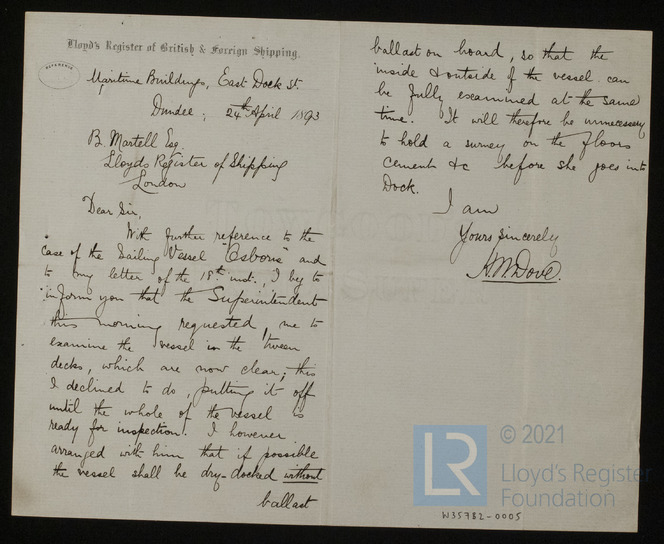 Lloyd's Register of British & Foreign Shipping.
REFERENCE
Maritime Buildings, East Dock St.
Dundee, 24th April 1893
B. Martell Esq.
Lloyds Register of Shipping
London
Dear Sir,
With further reference to the
case of the Sailing Vessel "Osborne" and
to my letter of the 18th inst., I beg to
inform you that the Superintendent
this morning requested me to
examine the vessel in the 'tween
decks, which are now clear; this
I declined to do, putting it off
until the whole of the vessel is
ready for inspection. I however
arranged with him that if possible
the vessel shall be dry-docked without
ballast
ballast on board, so that the
inside & outside of the vessel can
be fully examined at the same
time. It will therefore be unnecessary
to hold a survey on the floors
cement &c before she goes into
Dock.
I am
Yours sincerely
A M Dove.
LR
© 2021
Lloyd's Register
Foundation
W35782-0005